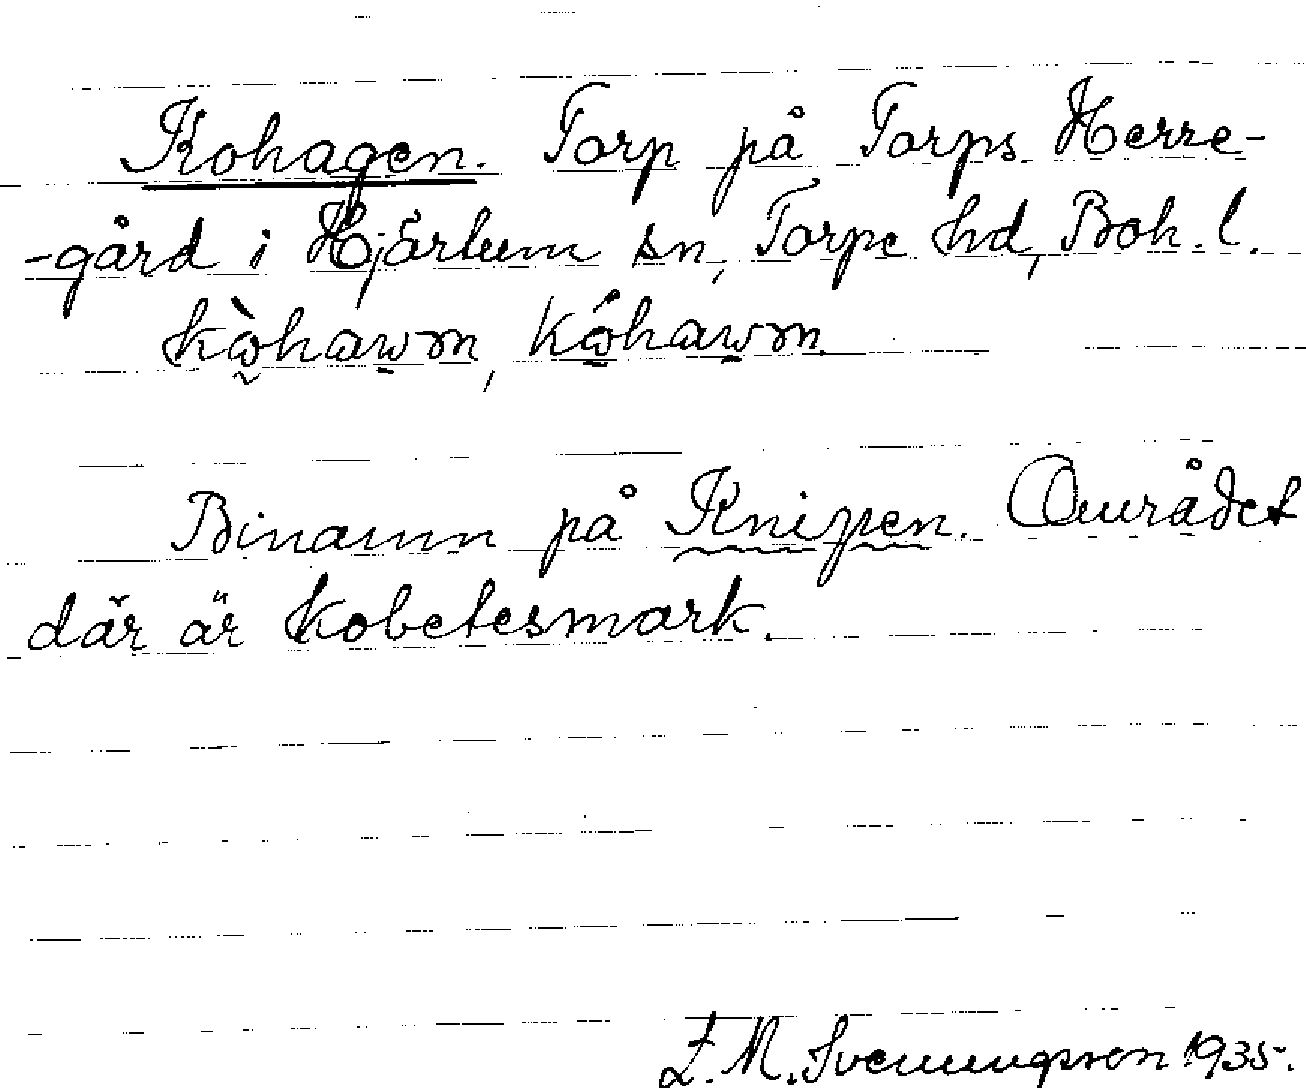 Kohagen. Torp på Torps Herre-
-gård i Hjärtum sn, Torpe hd, Boh. l.
kòhawm, kóhawm
Binamn på Knipen. Området
där är kobetesmark.
M. Svenungsson 1935.